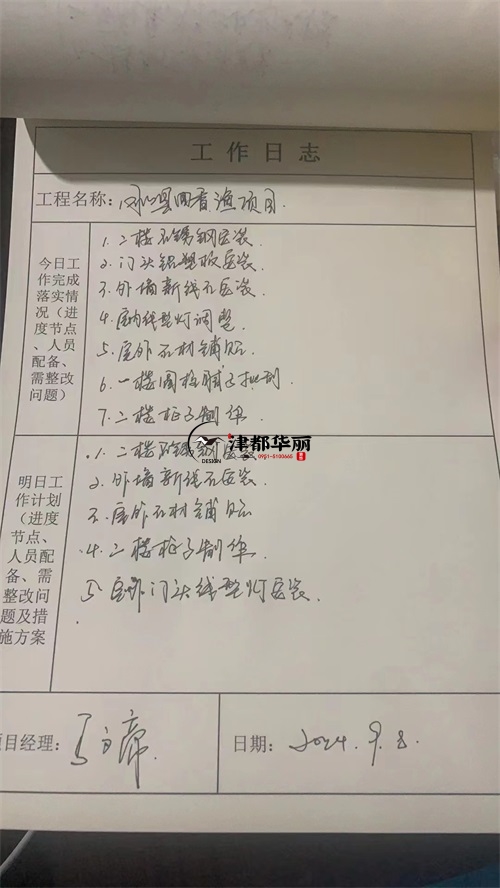 工作日志
工程名称：
今日工作完成落实情况（进度节点、人员配备、需整改问题）
1. 二楼不锈钢安装.
2. 门头铝塑板安装.
3. 外墙新线石安装.
4. 室内线型灯调整
5. 屋外石材铺贴
6. 一楼圆柱腻子批刮.
7. 二楼柜子制作
津都华丽
DESIGN
0951-5100665
明日工作计划（进度节点、人员配备、需整改问题及措施方案
1. 二楼不锈钢安装
2. 外墙新线石安装.
3. 屋外石材铺贴
4. 二楼柜子制作.
5 室外门头线型灯安装.
项目经理：
日期： 2024.9.8.